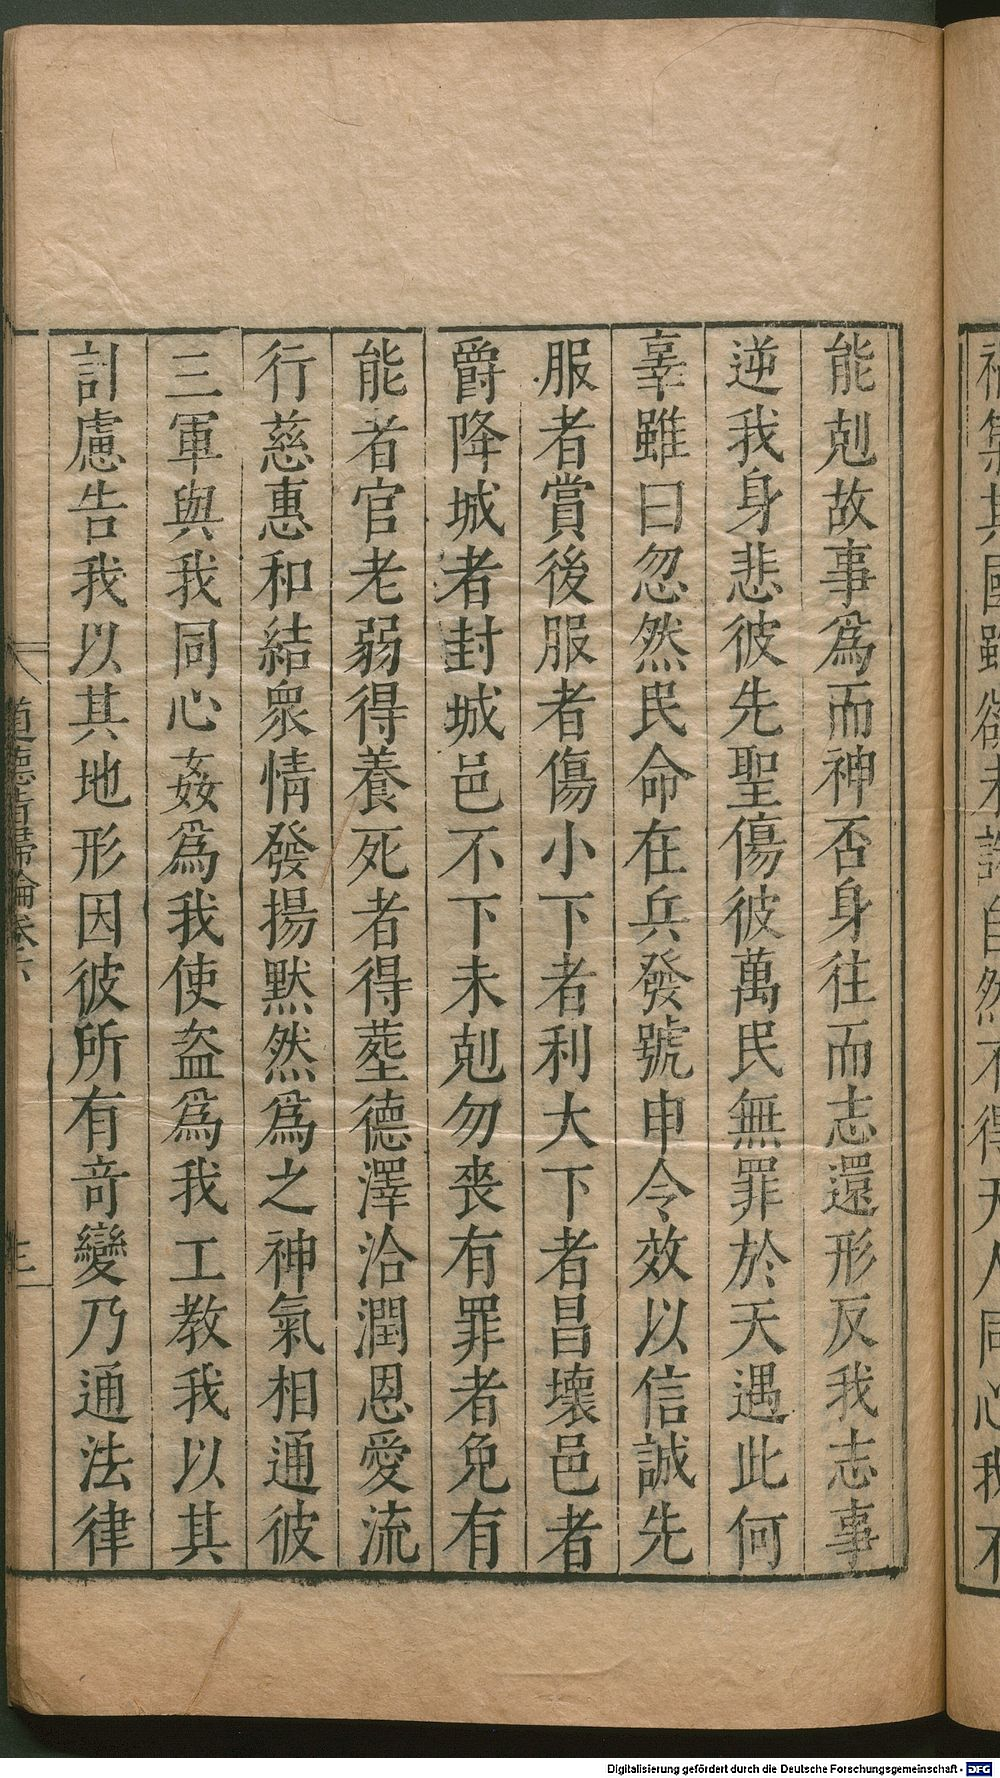 能剋故事爲而神否身往而志還形反我志事
逆我身悲彼先聖傷彼萬民無罪於天遇此何
辜雖曰忽然民命在兵發號申令效以信誠先
服者賞後服者傷小下者利大下者昌壞邑者
爵降城者封城邑不下未剋勿喪有罪者免有
能者官老弱得養死者得塟德澤洽潤恩愛流
行慈惠和結衆情發揚默然爲之神氣相通彼
三軍與我同心姦爲我使盜爲我工教我以其
計慮告我以其地形因彼所有奇變乃通法律
道德指歸論卷六
Digitalisierung gefördert durch die Deutsche Forschungsgemeinschaft - DFG